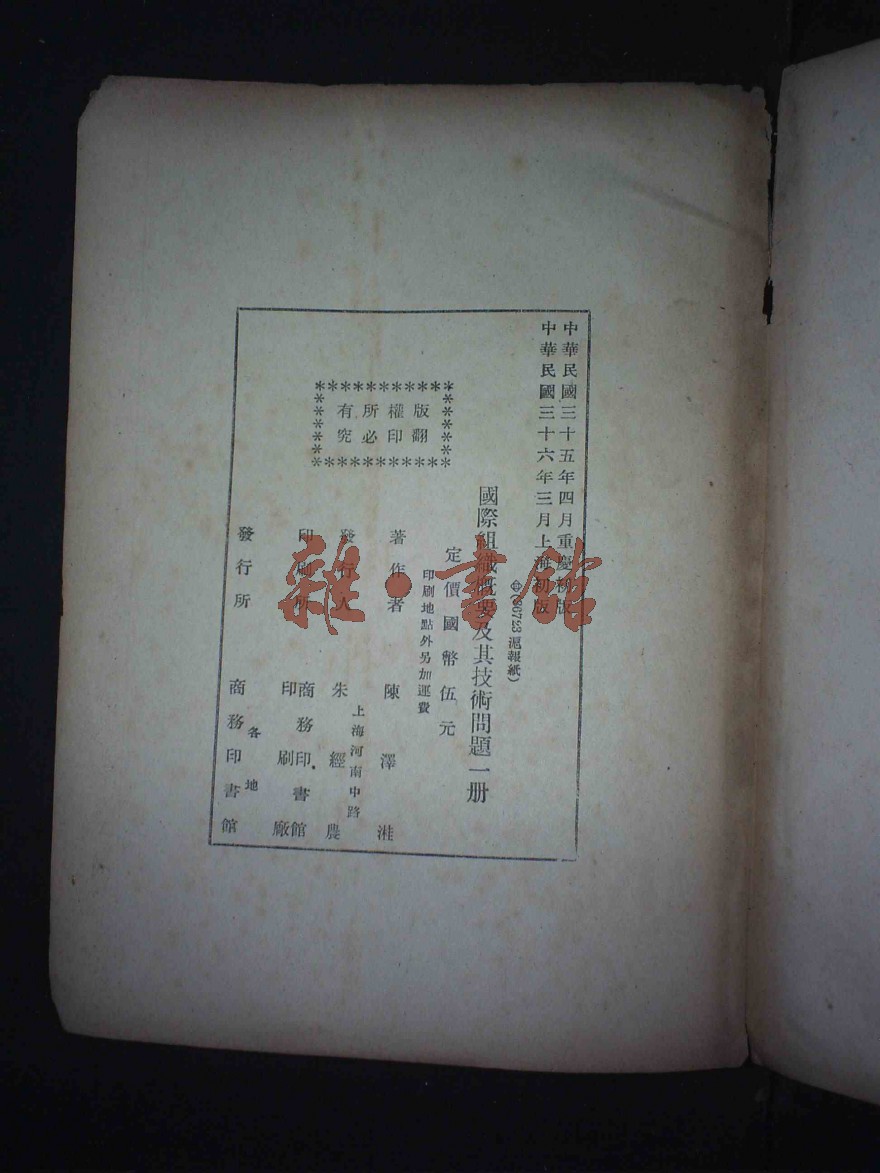 中華民國三十五年四月重慶初版
中華民國三十六年三月上海初版
(86723滬報紙)
國際組織概要及其技術問題一册
定價國幣伍元
印刷地點外另加運費
版權所有
翻印必究
著作者 陳澤湉
上海河南中路
發行人 朱經農
印刷所 商務印書館
印刷廠
各地
發行所 商務印書館
雜·書館